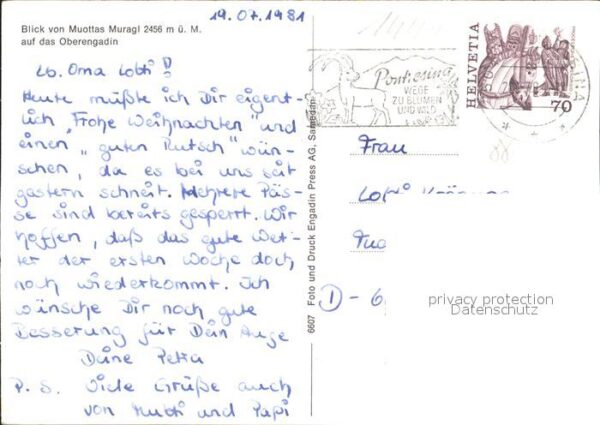 19.07.1981
Blick von Muottas Muragl 2456 m ü. M.
auf das Oberengadin
Lb. Oma Lobti!
Heute müßte ich Dir eigent-
lich „Frohe Weihnachten" und
einen „guten Rutsch" wün-
schen, da es bei uns seit
gestern schneit. Mehrere Päs-
se sind bereits gesperrt. Wir
hoffen, daß das gute Wet-
ter der ersten Woche doch
noch wiederkommt. Ich
wünsche Dir noch gute
Besserung für Dein Auge
Deine Petra
P.S. Viele Grüße auch
von Mutti und Papi
6607 Foto und Druck Engadin Press AG, Samedan
Pontresina
WEGE
ZU BLUMEN
UND WILD
HELVETIA
70
Frau
D-6
privacy protection
Datenschutz